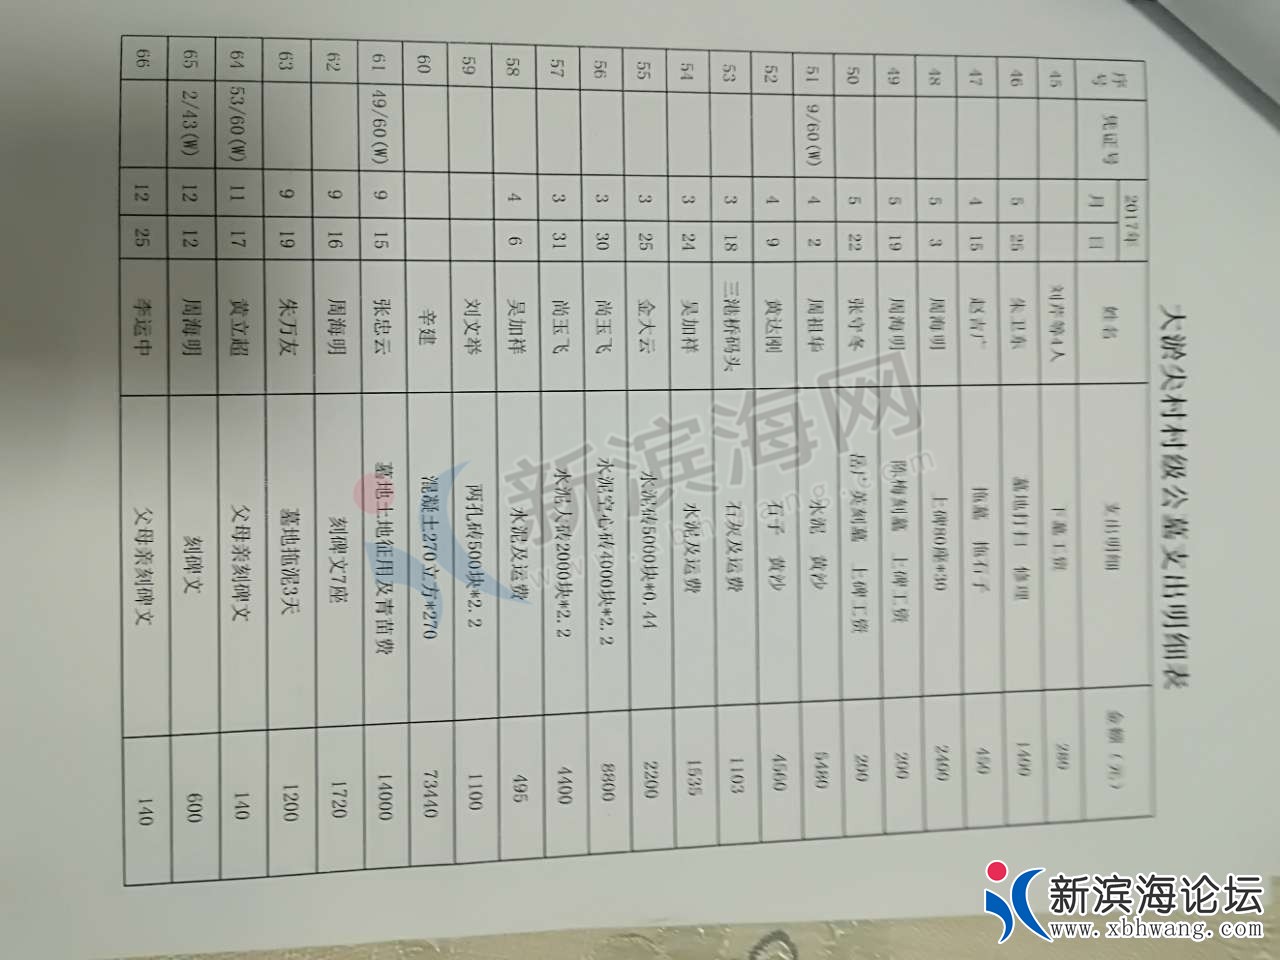 大淤尖村村级公墓支出明细表
序号 凭证号 2017年 月 日 姓名 支出明细 金额（元）
45 刘芹等4人 下墓工资 280
46 5 25 朱卫东 墓地打扫 修理 1400
47 4 15 赵吉广 拖墓 拖石子 450
48 5 3 周海明 上碑80座*30 2400
49 5 19 周海明 陈梅刻墓 上碑工资 200
50 5 22 张守冬 岳广英刻墓 上碑工资 200
51 9/60(W) 4 2 周祖华 水泥 黄沙 5480
52 4 9 黄达刚 石子 黄沙 4560
53 3 18 三港桥码头 石灰及运费 1103
54 3 24 吴加祥 水泥及运费 1535
55 3 25 金大云 水泥砖5000块*0.44 2200
56 3 30 尚玉飞 水泥空心砖4000块*2.2 8800
57 3 31 尚玉飞 水泥大砖2000块*2.2 4400
58 4 6 吴加祥 水泥及运费 495
59 刘文举 两孔砖500块*2.2 1100
60 辛建 混凝土270立方*270 73440
61 49/60(W) 9 15 张忠云 墓地土地征用及青苗费 14000
62 9 16 周海明 刻碑文7座 1720
63 9 19 朱万友 墓地拖泥3天 1200
64 53/60(W) 11 17 黄立超 父母亲刻碑文 140
65 2/43(W) 12 12 周海明 刻碑文 600
66 12 25 李运中 父母亲刻碑文 140
新滨海网
新滨海论坛
www.xbhwang.com